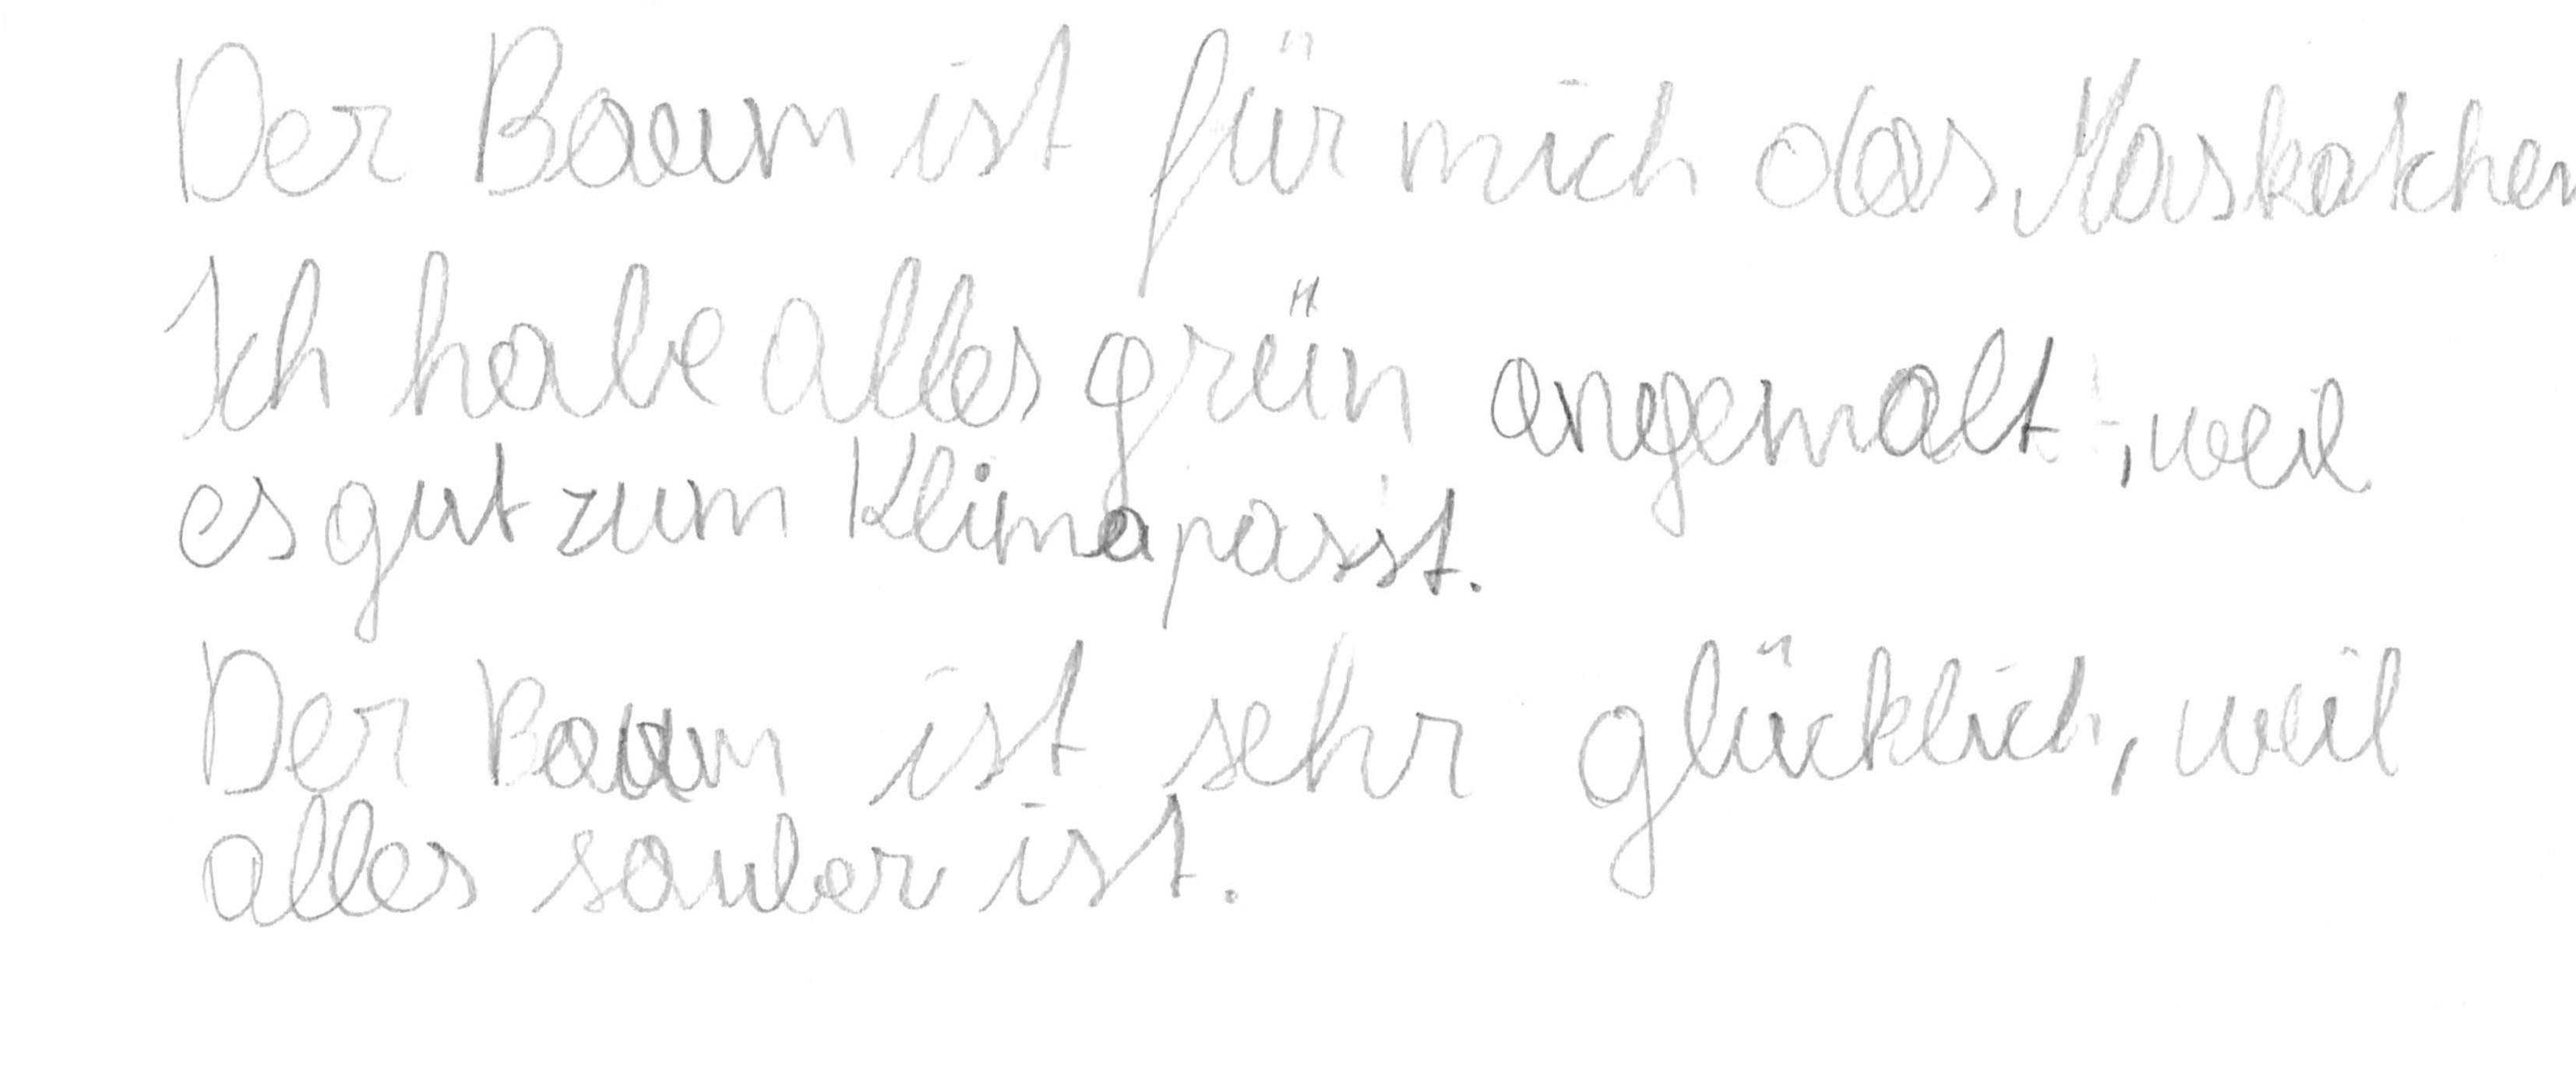 Der Baum ist für mich das Maskotchen
Ich habe alles grün angemalt, weil
es gut zum Klima passt.
Der Baum ist sehr glücklich, weil
alles sauber ist.